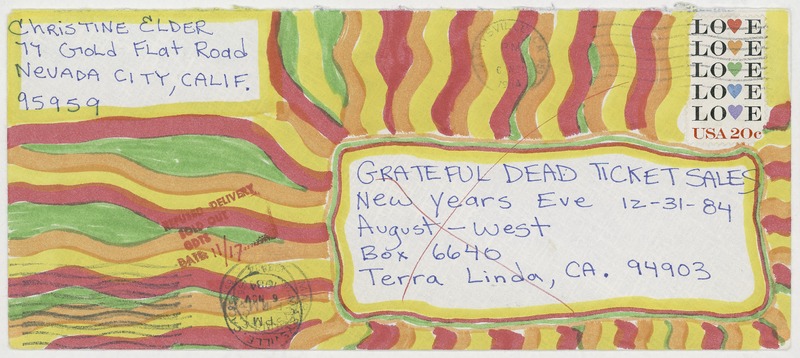 Christine Elder
77 Gold Flat Road
Nevada City, Calif.
95959
LOVE
LOVE
LOVE
LOVE
LOVE
USA 20c
Grateful Dead Ticket Sales
New Years Eve 12-31-84
August-West
Box 6640
Terra Linda, CA. 94903
REFUSED DELIVERY
SOLD OUT
GDTS
DATE: 11/17
PM